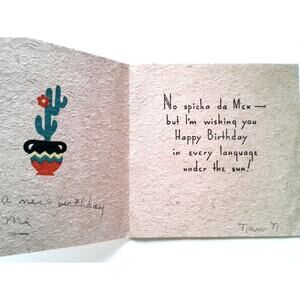 a nice birthday
Me
No spicka da Mex —
but I'm wishing you
Happy Birthday
in every language
under the sun!